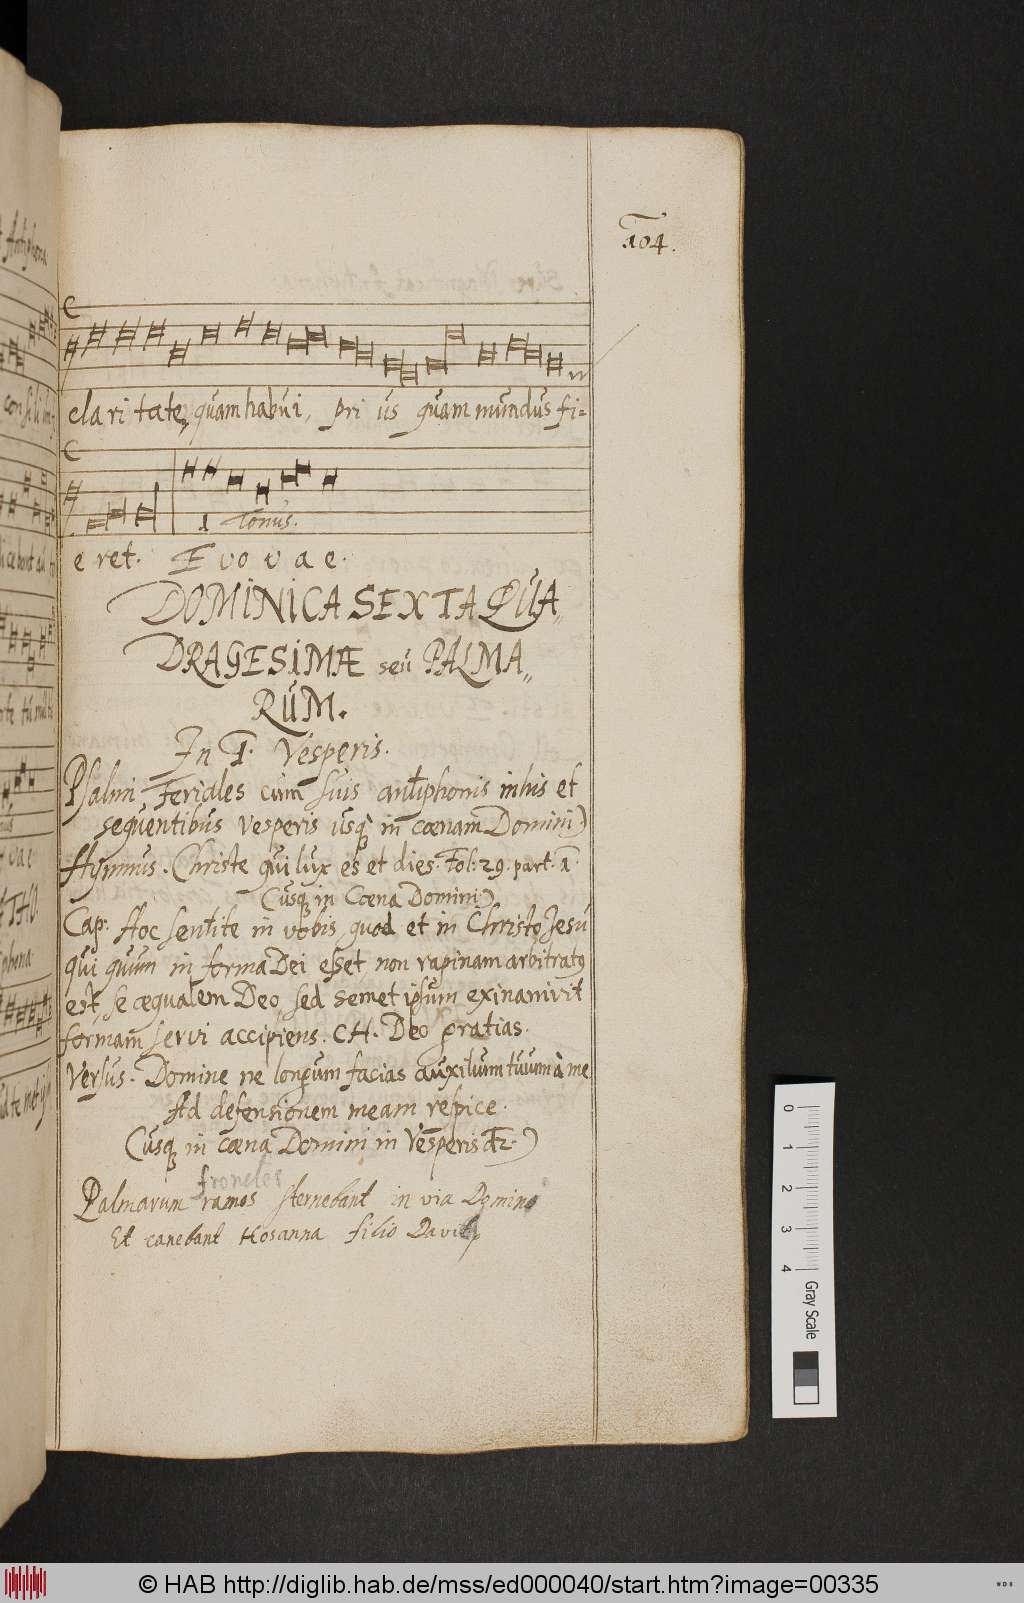 104.
cla ri tate, quam habui, pri us quam mundus fi=
1 Tonus.
e ret. E vo v a e.
DOMINICA SEXTA QUA„
DRAGESIMÆ seu PALMA„
RUM.
In I. Vesperis.
Psalmi Feriales cum suis antiphonis in his et
sequentibus Vesperis usq in cœnam Domini)
Hymnus. Christe qui lux es et dies. Fol: 29. part. 1.
(usq in Cœna Domini)
Cap: Hoc sentite in vobis, quod et in Christo Jesu
qui quum in forma Dei esset non rapinam arbitratus
est, se æqualem Deo, sed semet ipsum exinanivit
formam servi accipiens. CH. Deo gratias.
Versus. Domine ne longum facias auxilium tuum à me
Ad defensionem meam respice.
(usq in cœna Domini in Vesperis)
frondes
Palmarum ramos sternebant in via Domino
Et canebant Hosanna filio David
Antiphona
0 1 2 3 4 Gray Scale
© HAB http://diglib.hab.de/mss/ed000040/start.htm?image=00335